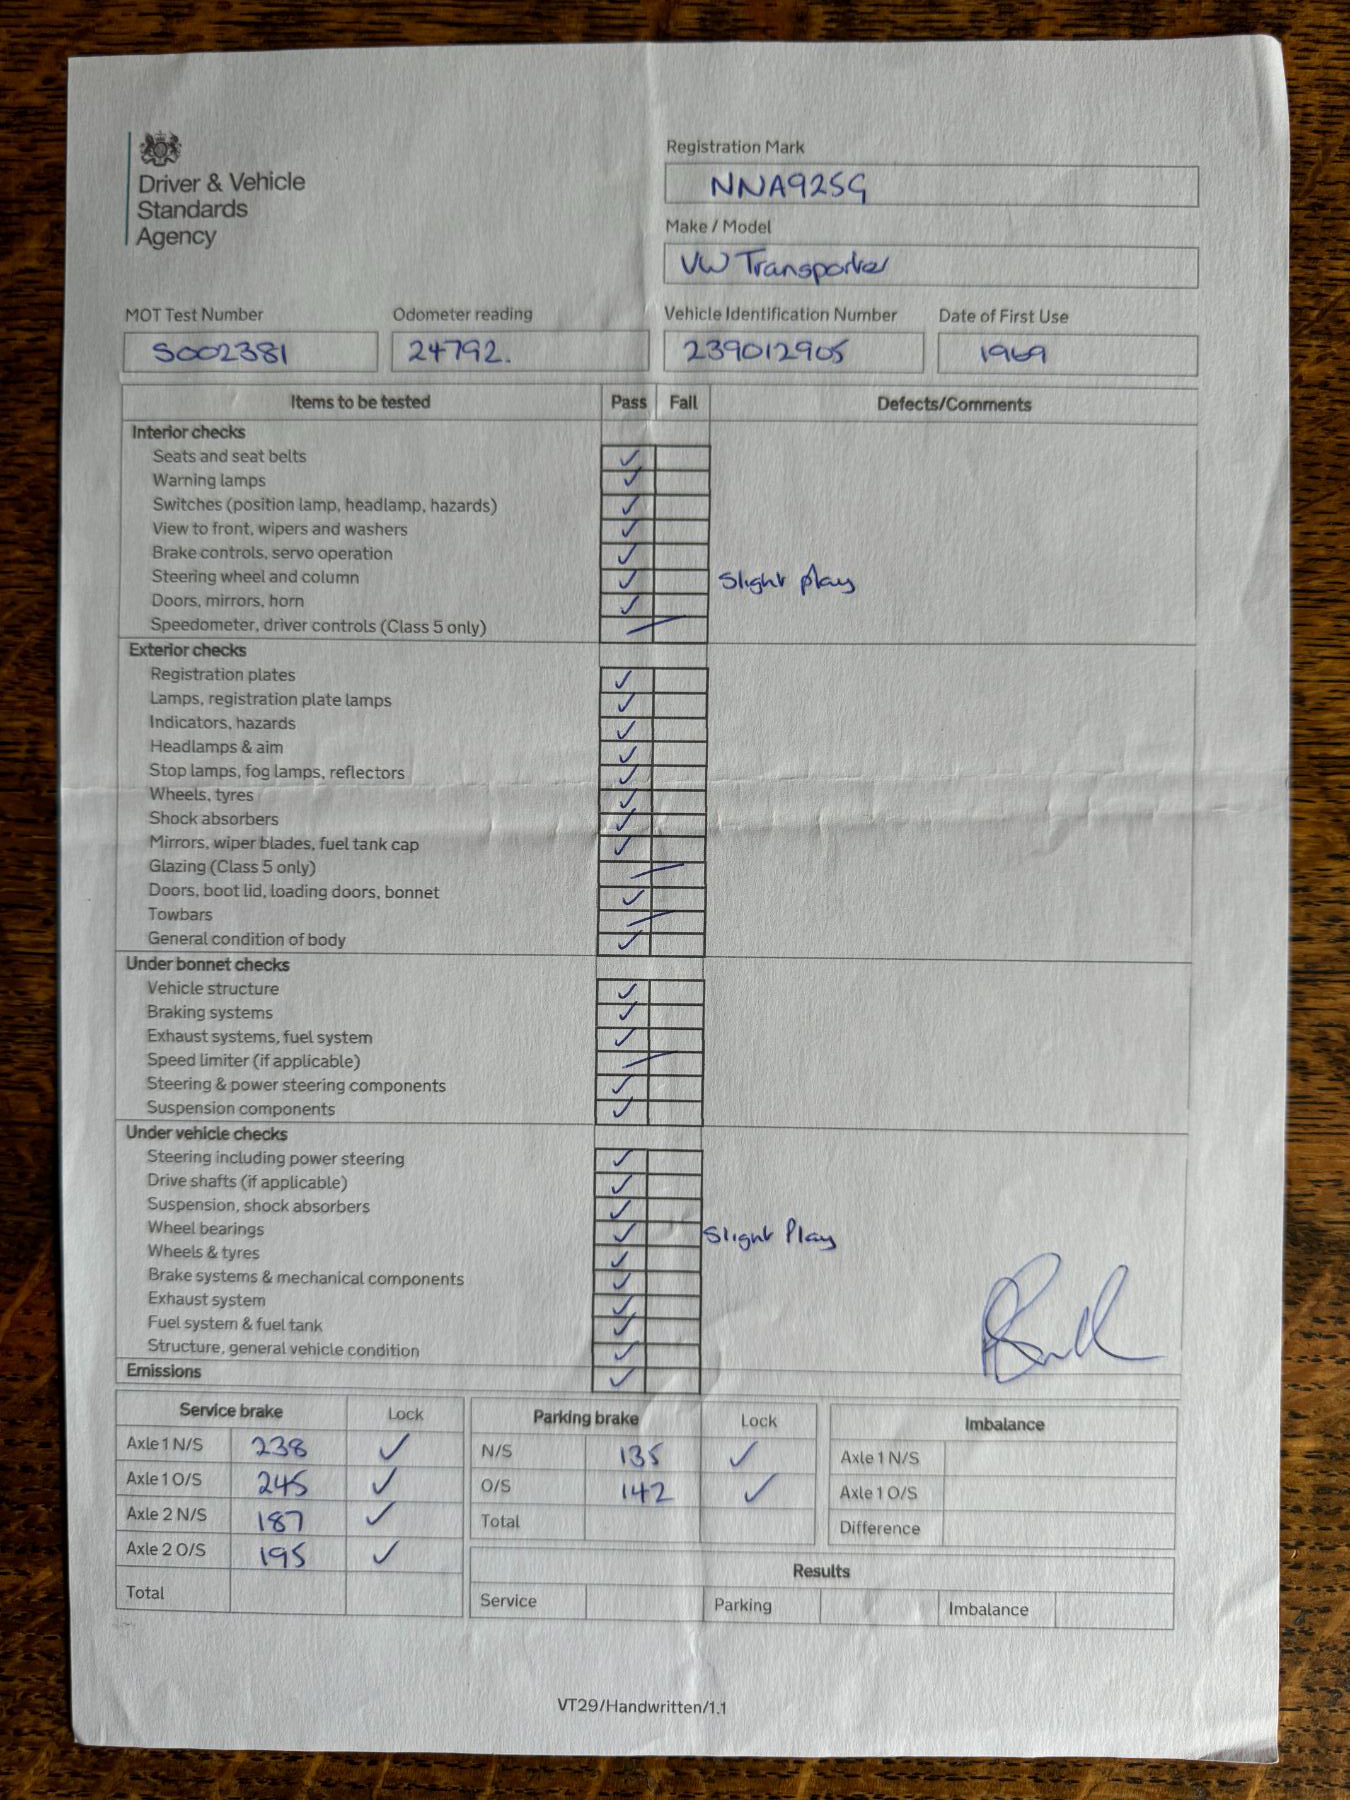 Driver & Vehicle
Standards
Agency
Registration Mark
NNA925G
Make / Model
VW Transporter
MOT Test Number
S002381
Odometer reading
24792.
Vehicle Identification Number
239012905
Date of First Use
1969
Items to be tested Pass Fail Defects/Comments
Interior checks
Seats and seat belts ✓
Warning lamps ✓
Switches (position lamp, headlamp, hazards) ✓
View to front, wipers and washers ✓
Brake controls, servo operation ✓
Steering wheel and column ✓ Slight play
Doors, mirrors, horn ✓
Speedometer, driver controls (Class 5 only)
Exterior checks
Registration plates ✓
Lamps, registration plate lamps ✓
Indicators, hazards ✓
Headlamps & aim ✓
Stop lamps, fog lamps, reflectors ✓
Wheels, tyres ✓
Shock absorbers ✓
Mirrors, wiper blades, fuel tank cap ✓
Glazing (Class 5 only)
Doors, boot lid, loading doors, bonnet ✓
Towbars
General condition of body ✓
Under bonnet checks
Vehicle structure ✓
Braking systems ✓
Exhaust systems, fuel system ✓
Speed limiter (if applicable)
Steering & power steering components ✓
Suspension components ✓
Under vehicle checks
Steering including power steering ✓
Drive shafts (if applicable) ✓
Suspension, shock absorbers ✓
Wheel bearings ✓ Slight Play
Wheels & tyres ✓
Brake systems & mechanical components ✓
Exhaust system ✓
Fuel system & fuel tank ✓
Structure, general vehicle condition ✓
Emissions ✓
Service brake Lock
Axle 1 N/S 238 ✓
Axle 1 O/S 245 ✓
Axle 2 N/S 187 ✓
Axle 2 O/S 195 ✓
Total
Parking brake Lock
N/S 135 ✓
O/S 142 ✓
Total
Imbalance
Axle 1 N/S
Axle 1 O/S
Difference
Results
Service Parking Imbalance
VT29/Handwritten/1.1